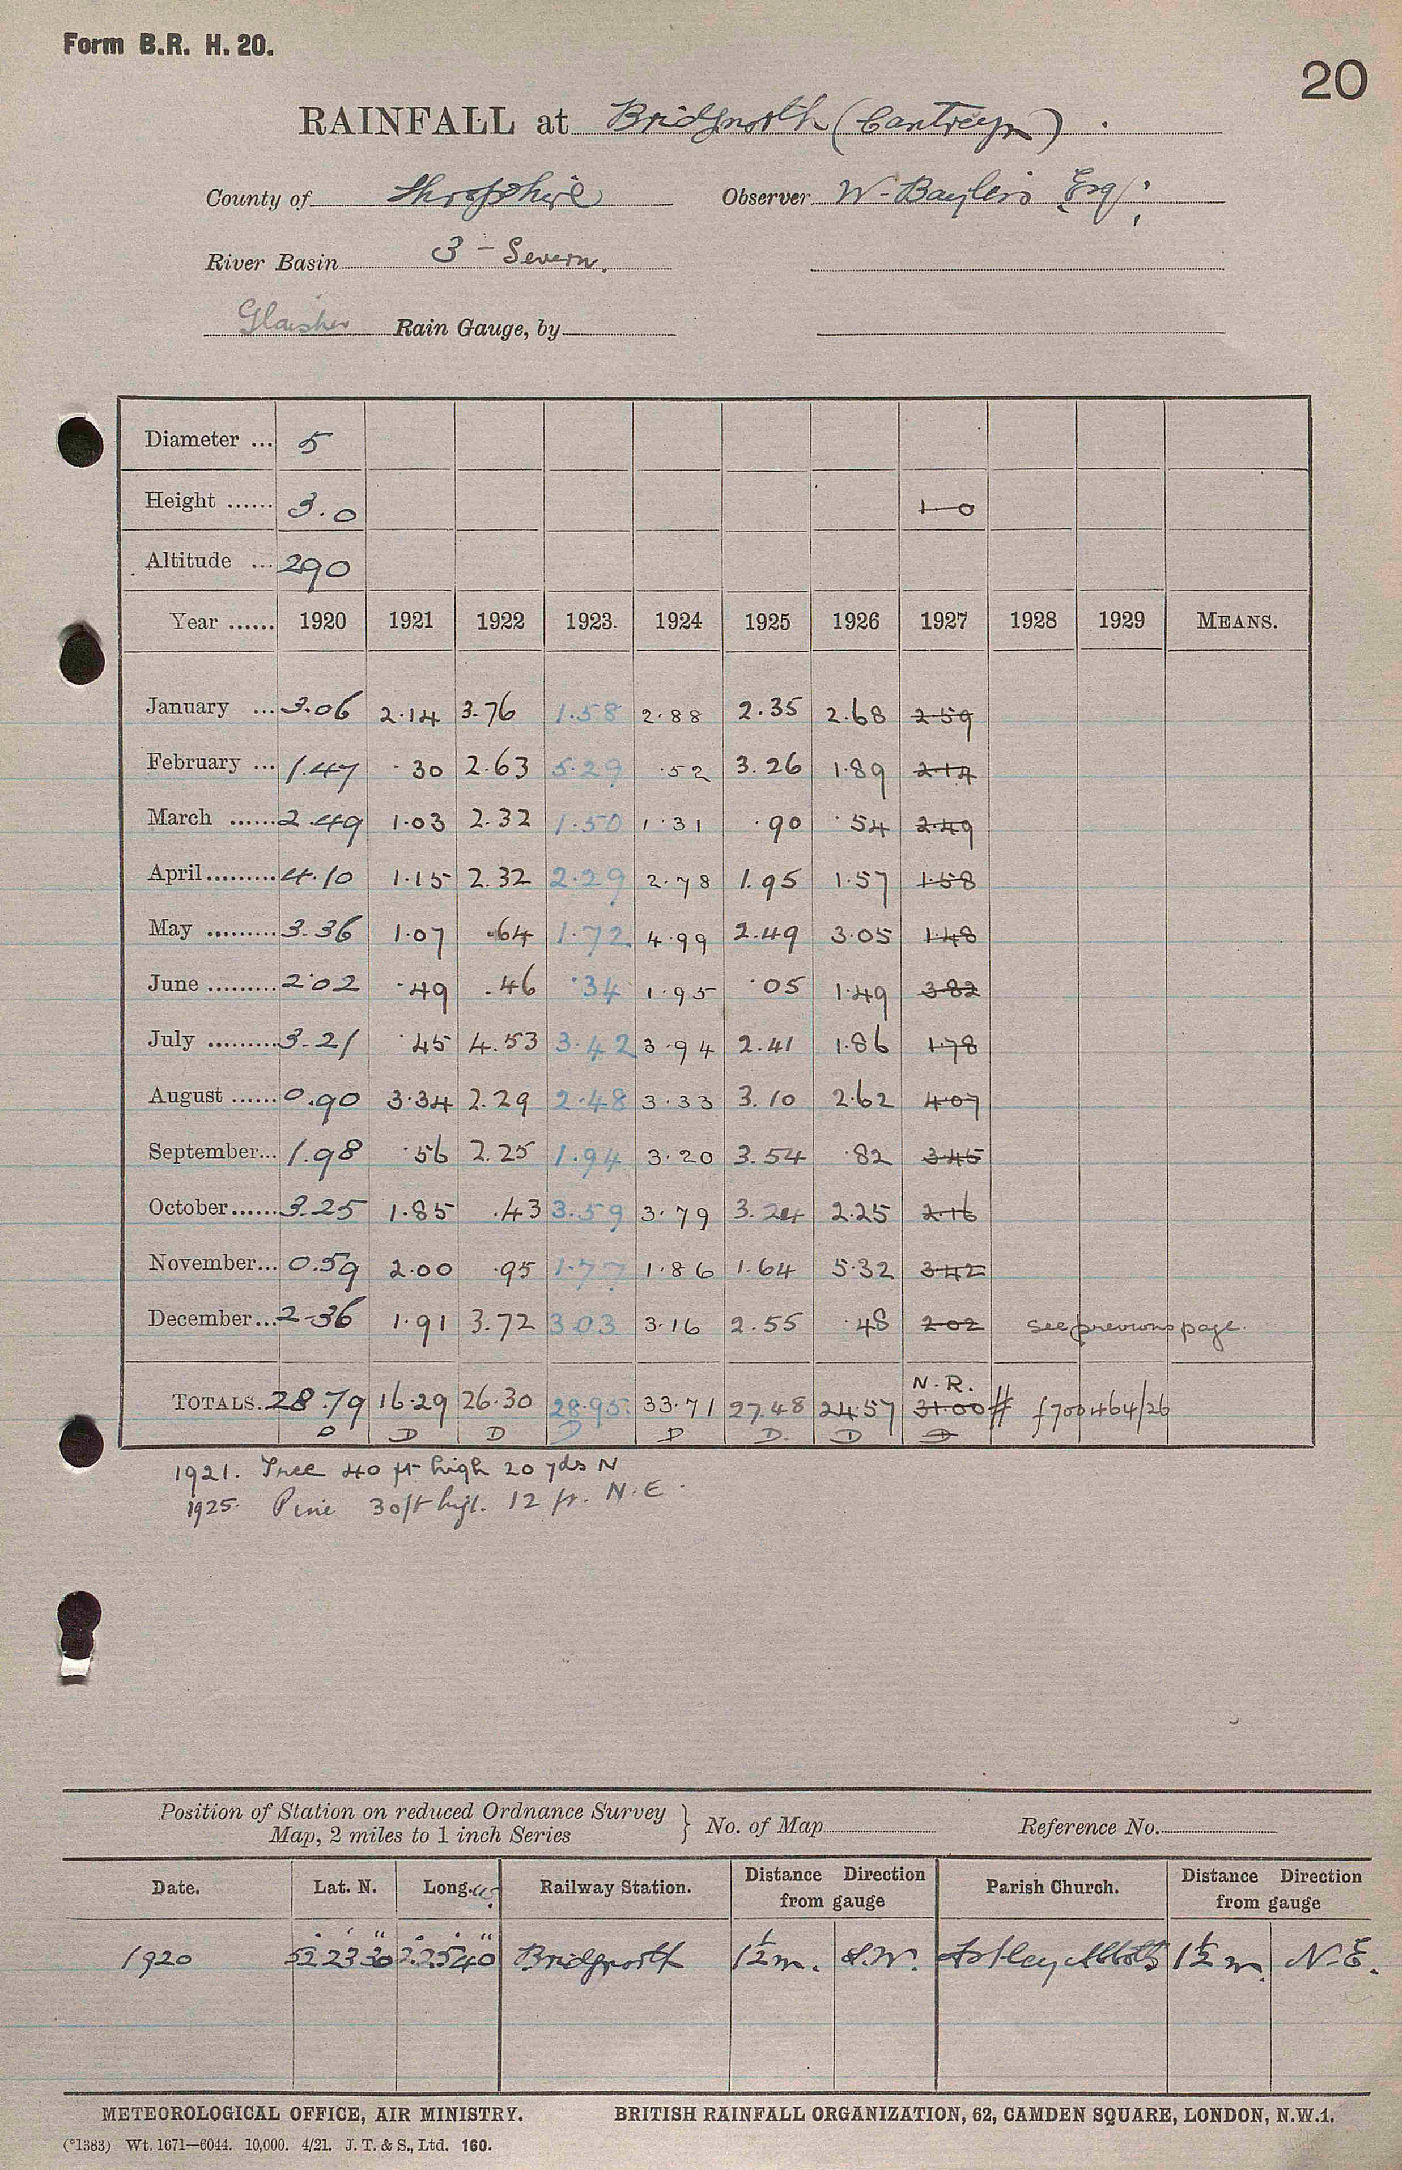 Form B.R. H. 20.
20
RAINFALL at Bridgnorth (Cantreyn).
County of Shropshire Observer W. Baylis Esq.
River Basin 3 - Severn.
Glaisher Rain Gauge, by
Diameter ... 5
Height ...... 3.0 1-0
Altitude ... 290
Year ...... 1920 1921 1922 1923. 1924 1925 1926 1927 1928 1929 MEANS.
January ... 3.06 2.14 3.76 1.58 2.88 2.35 2.68 2.59
February ... 1.47 .30 2.63 5.29 .52 3.26 1.89 2.14
March ...... 2.49 1.03 2.32 1.50 1.31 .90 .54 2.49
April ......... 4.10 1.15 2.32 2.29 2.78 1.95 1.57 1.58
May ......... 3.36 1.07 .64 1.72 4.99 2.49 3.05 1.48
June ......... 2.02 .49 .46 .34 1.95 .05 1.49 3.82
July ......... 3.21 .45 4.53 3.42 3.94 2.41 1.86 1.78
August ...... 0.90 3.34 2.29 2.48 3.33 3.10 2.62 4.07
September... 1.98 .56 2.25 1.94 3.20 3.54 .82 3.45
October...... 3.25 1.85 .43 3.59 3.79 3.24 2.25 2.16
November... 0.59 2.00 .95 1.77 1.86 1.64 5.32 3.42
December... 2.36 1.91 3.72 3.03 3.16 2.55 .48 2.02 see previous page.
N.R.
TOTALS. 28.79 16.29 26.30 28.95 33.71 27.48 24.57 31.00 # f700464/26
D D D D D D. D D
1921. Tree 40 ft high 20 yds N
1925. Pine 30ft high. 12 ft. N.E.
Position of Station on reduced Ordnance Survey
Map, 2 miles to 1 inch Series } No. of Map Reference No.
Date. Lat. N. Long. W. Railway Station. Distance Direction from gauge Parish Church. Distance Direction from gauge
1920 52° 23' 30" 2° 25' 40" Bridgnorth 1½ m. S.W. Astley Abbotts 1½ m. N.E.
METEOROLOGICAL OFFICE, AIR MINISTRY. BRITISH RAINFALL ORGANIZATION, 62, CAMDEN SQUARE, LONDON, N.W.1.
(*1383) Wt. 1671—6044. 10,000. 4/21. J. T. & S., Ltd. 160.